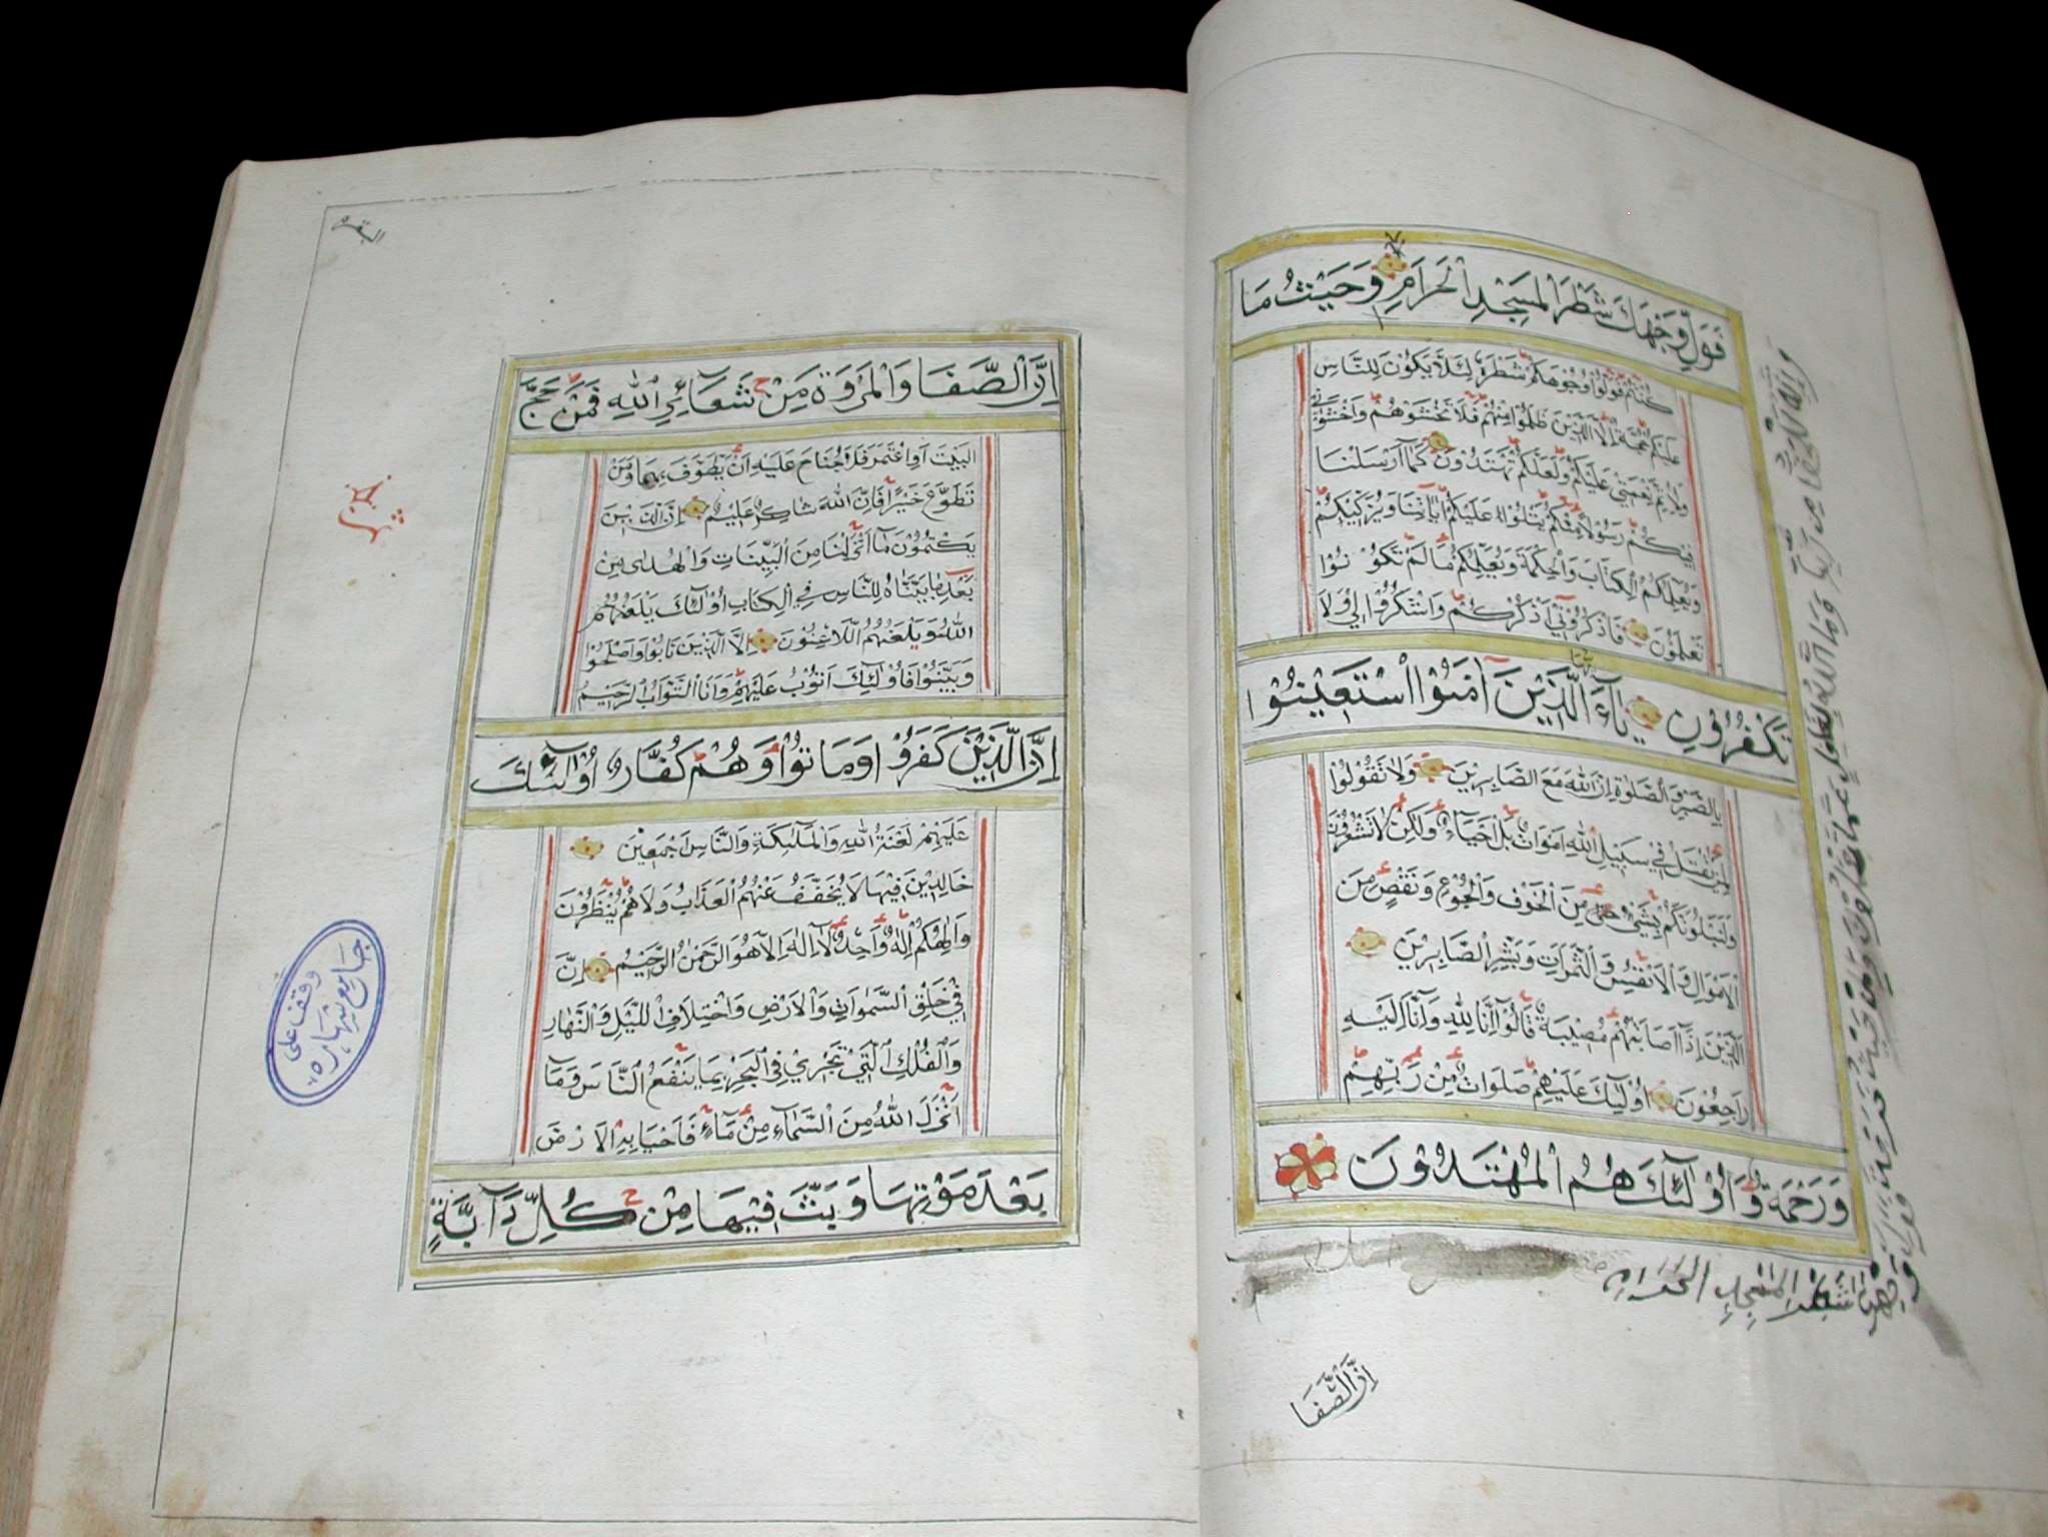 فَوَلِّ وَجْهَكَ شَطْرَ الْمَسْجِدِ الْحَرَامِ وَحَيْثُ مَا
كُنْتُمْ فَوَلُّوا وُجُوهَكُمْ شَطْرَهُ لِئَلَّا يَكُونَ لِلنَّاسِ
عَلَيْكُمْ حُجَّةٌ إِلَّا الَّذِينَ ظَلَمُوا مِنْهُمْ فَلَا تَخْشَوْهُمْ وَاخْشَوْنِي
وَلِأُتِمَّ نِعْمَتِي عَلَيْكُمْ وَلَعَلَّكُمْ تَهْتَدُونَ كَمَا أَرْسَلْنَا
فِيكُمْ رَسُولًا مِنْكُمْ يَتْلُوا عَلَيْكُمْ آيَاتِنَا وَيُزَكِّيكُمْ
وَيُعَلِّمُكُمُ الْكِتَابَ وَالْحِكْمَةَ وَيُعَلِّمُكُمْ مَا لَمْ تَكُونُوا
تَعْلَمُونَ فَاذْكُرُونِي أَذْكُرْكُمْ وَاشْكُرُوا لِي وَلَا
تَكْفُرُونِ يَاءَيُّهَا الَّذِينَ آمَنُوا اسْتَعِينُوا
بِالصَّبْرِ وَالصَّلَوٰةِ إِنَّ اللَّهَ مَعَ الصَّابِرِينَ وَلَا تَقُولُوا
لِمَنْ يُقْتَلُ فِي سَبِيلِ اللَّهِ أَمْوَاتٌ بَلْ أَحْيَاءٌ وَلَكِنْ لَا تَشْعُرُونَ
وَلَنَبْلُوَنَّكُمْ بِشَيْءٍ مِنَ الْخَوْفِ وَالْجُوعِ وَنَقْصٍ مِنَ
الْأَمْوَالِ وَالْأَنْفُسِ وَالثَّمَرَاتِ وَبَشِّرِ الصَّابِرِينَ
الَّذِينَ إِذَا أَصَابَتْهُمْ مُصِيبَةٌ قَالُوا إِنَّا لِلَّهِ وَإِنَّا إِلَيْهِ
رَاجِعُونَ أُولَئِكَ عَلَيْهِمْ صَلَوَاتٌ مِنْ رَبِّهِمْ
وَرَحْمَةٌ وَأُولَئِكَ هُمُ الْمُهْتَدُونَ
وَإِنَّهُ لَلْحَقُّ مِنْ رَبِّكَ وَمَا اللَّهُ بِغَافِلٍ عَمَّا تَعْمَلُونَ وَمِنْ حَيْثُ خَرَجْتَ فَوَلِّ
وَجْهَكَ شَطْرَ الْمَسْجِدِ الْحَرَامِ
إِنَّ الصَّفَا
البقره
إِنَّ الصَّفَا وَالْمَرْوَةَ مِنْ شَعَآئِرِ اللَّهِ فَمَنْ حَجَّ
الْبَيْتَ أَوِ اعْتَمَرَ فَلَا جُنَاحَ عَلَيْهِ أَنْ يَطَّوَّفَ بِهِمَا وَمَنْ
تَطَوَّعَ خَيْرًا فَإِنَّ اللَّهَ شَاكِرٌ عَلِيمٌ إِنَّ الَّذِينَ
يَكْتُمُونَ مَا أَنْزَلْنَا مِنَ الْبَيِّنَاتِ وَالْهُدَى مِنْ
بَعْدِ مَا بَيَّنَّاهُ لِلنَّاسِ فِي الْكِتَابِ أُولَئِكَ يَلْعَنُهُمُ
اللَّهُ وَيَلْعَنُهُمُ اللَّاعِنُونَ إِلَّا الَّذِينَ تَابُوا وَأَصْلَحُوا
وَبَيَّنُوا فَأُولَئِكَ أَتُوبُ عَلَيْهِمْ وَأَنَا التَّوَّابُ الرَّحِيمُ
إِنَّ الَّذِينَ كَفَرُوا وَمَاتُوا وَهُمْ كُفَّارٌ أُولَئِكَ
عَلَيْهِمْ لَعْنَةُ اللَّهِ وَالْمَلَئِكَةِ وَالنَّاسِ أَجْمَعِينَ
خَالِدِينَ فِيهَا لَا يُخَفَّفُ عَنْهُمُ الْعَذَابُ وَلَا هُمْ يُنْظَرُونَ
وَإِلَهُكُمْ إِلَهٌ وَاحِدٌ لَا إِلَهَ إِلَّا هُوَ الرَّحْمَنُ الرَّحِيمُ إِنَّ
فِي خَلْقِ السَّمَوَاتِ وَالْأَرْضِ وَاخْتِلَافِ اللَّيْلِ وَالنَّهَارِ
وَالْفُلْكِ الَّتِي تَجْرِي فِي الْبَحْرِ بِمَا يَنْفَعُ النَّاسَ وَمَا
أَنْزَلَ اللَّهُ مِنَ السَّمَاءِ مِنْ مَاءٍ فَأَحْيَا بِهِ الْأَرْضَ
بَعْدَ مَوْتِهَا وَبَثَّ فِيهَا مِنْ كُلِّ دَآبَّةٍ
وقف على
جامع شهاره